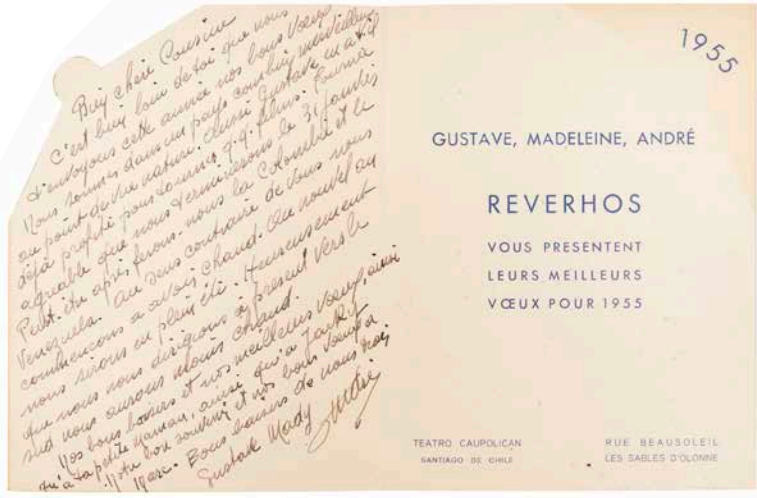 Bien chère Cousine
C'est bien loin de toi que nous
t'envoyons cette année nos bons Voeux
Nous sommes dans un pays combien merveilleux
au point de vue nature. Aussi Gustave m a t'il
déjà profité pour tourner q.q. films. Tournée
agréable que nous terminerons le 31 Janvier
Peut-être après ferons-nous la Colombie et le
Venezuela. Au sens contraire de vous nous
commençons a avoir chaud. Au nouvel an
nous serons en plein été. Heureusement
que nous nous dirigeons à présent vers le
sud nous aurons moins chaud.
Nos bons baisers et nos meilleurs Voeux, ainsi
qu'à ta petite Maman, ainsi qu'à
Notre bon souvenir et nos bons Voeux a
Marc. Bons baisers de nous trois
Gustave Mady André
1955
GUSTAVE, MADELEINE, ANDRÉ
REVERHOS
VOUS PRESENTENT
LEURS MEILLEURS
VŒUX POUR 1955
TEATRO CAUPOLICAN
SANTIAGO DE CHILE
RUE BEAUSOLEIL
LES SABLES D'OLONNE